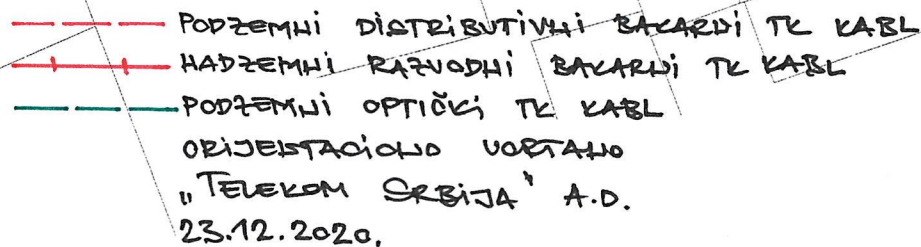 PODZEMNI DISTRIBUTIVNI BAKARNI TK KABL
NADZEMNI RAZVODNI BAKARNI TK KABL
PODZEMNI OPTIČKI TK KABL
ORIJENTACIONO UCRTANO
„TELEKOM SRBIJA" A.D.
23.12.2020.